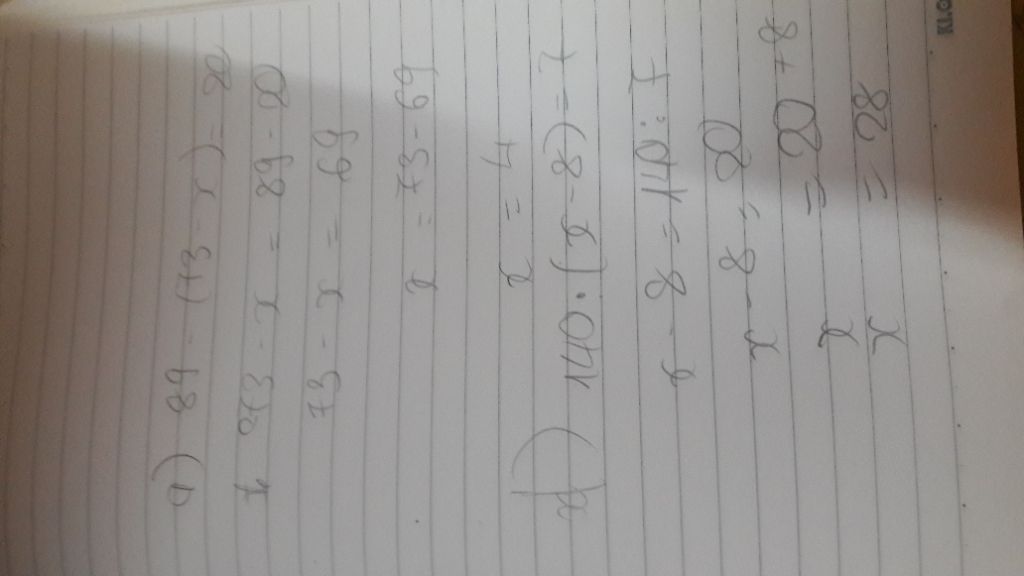 a) 89 - (73 - x) = 20
73 - x = 89 - 20
73 - x = 69
x = 73 - 69
x = 4
d) 140 : (x - 8) = 7
x - 8 = 140 : 7
x - 8 = 20
x = 20 + 8
x = 28